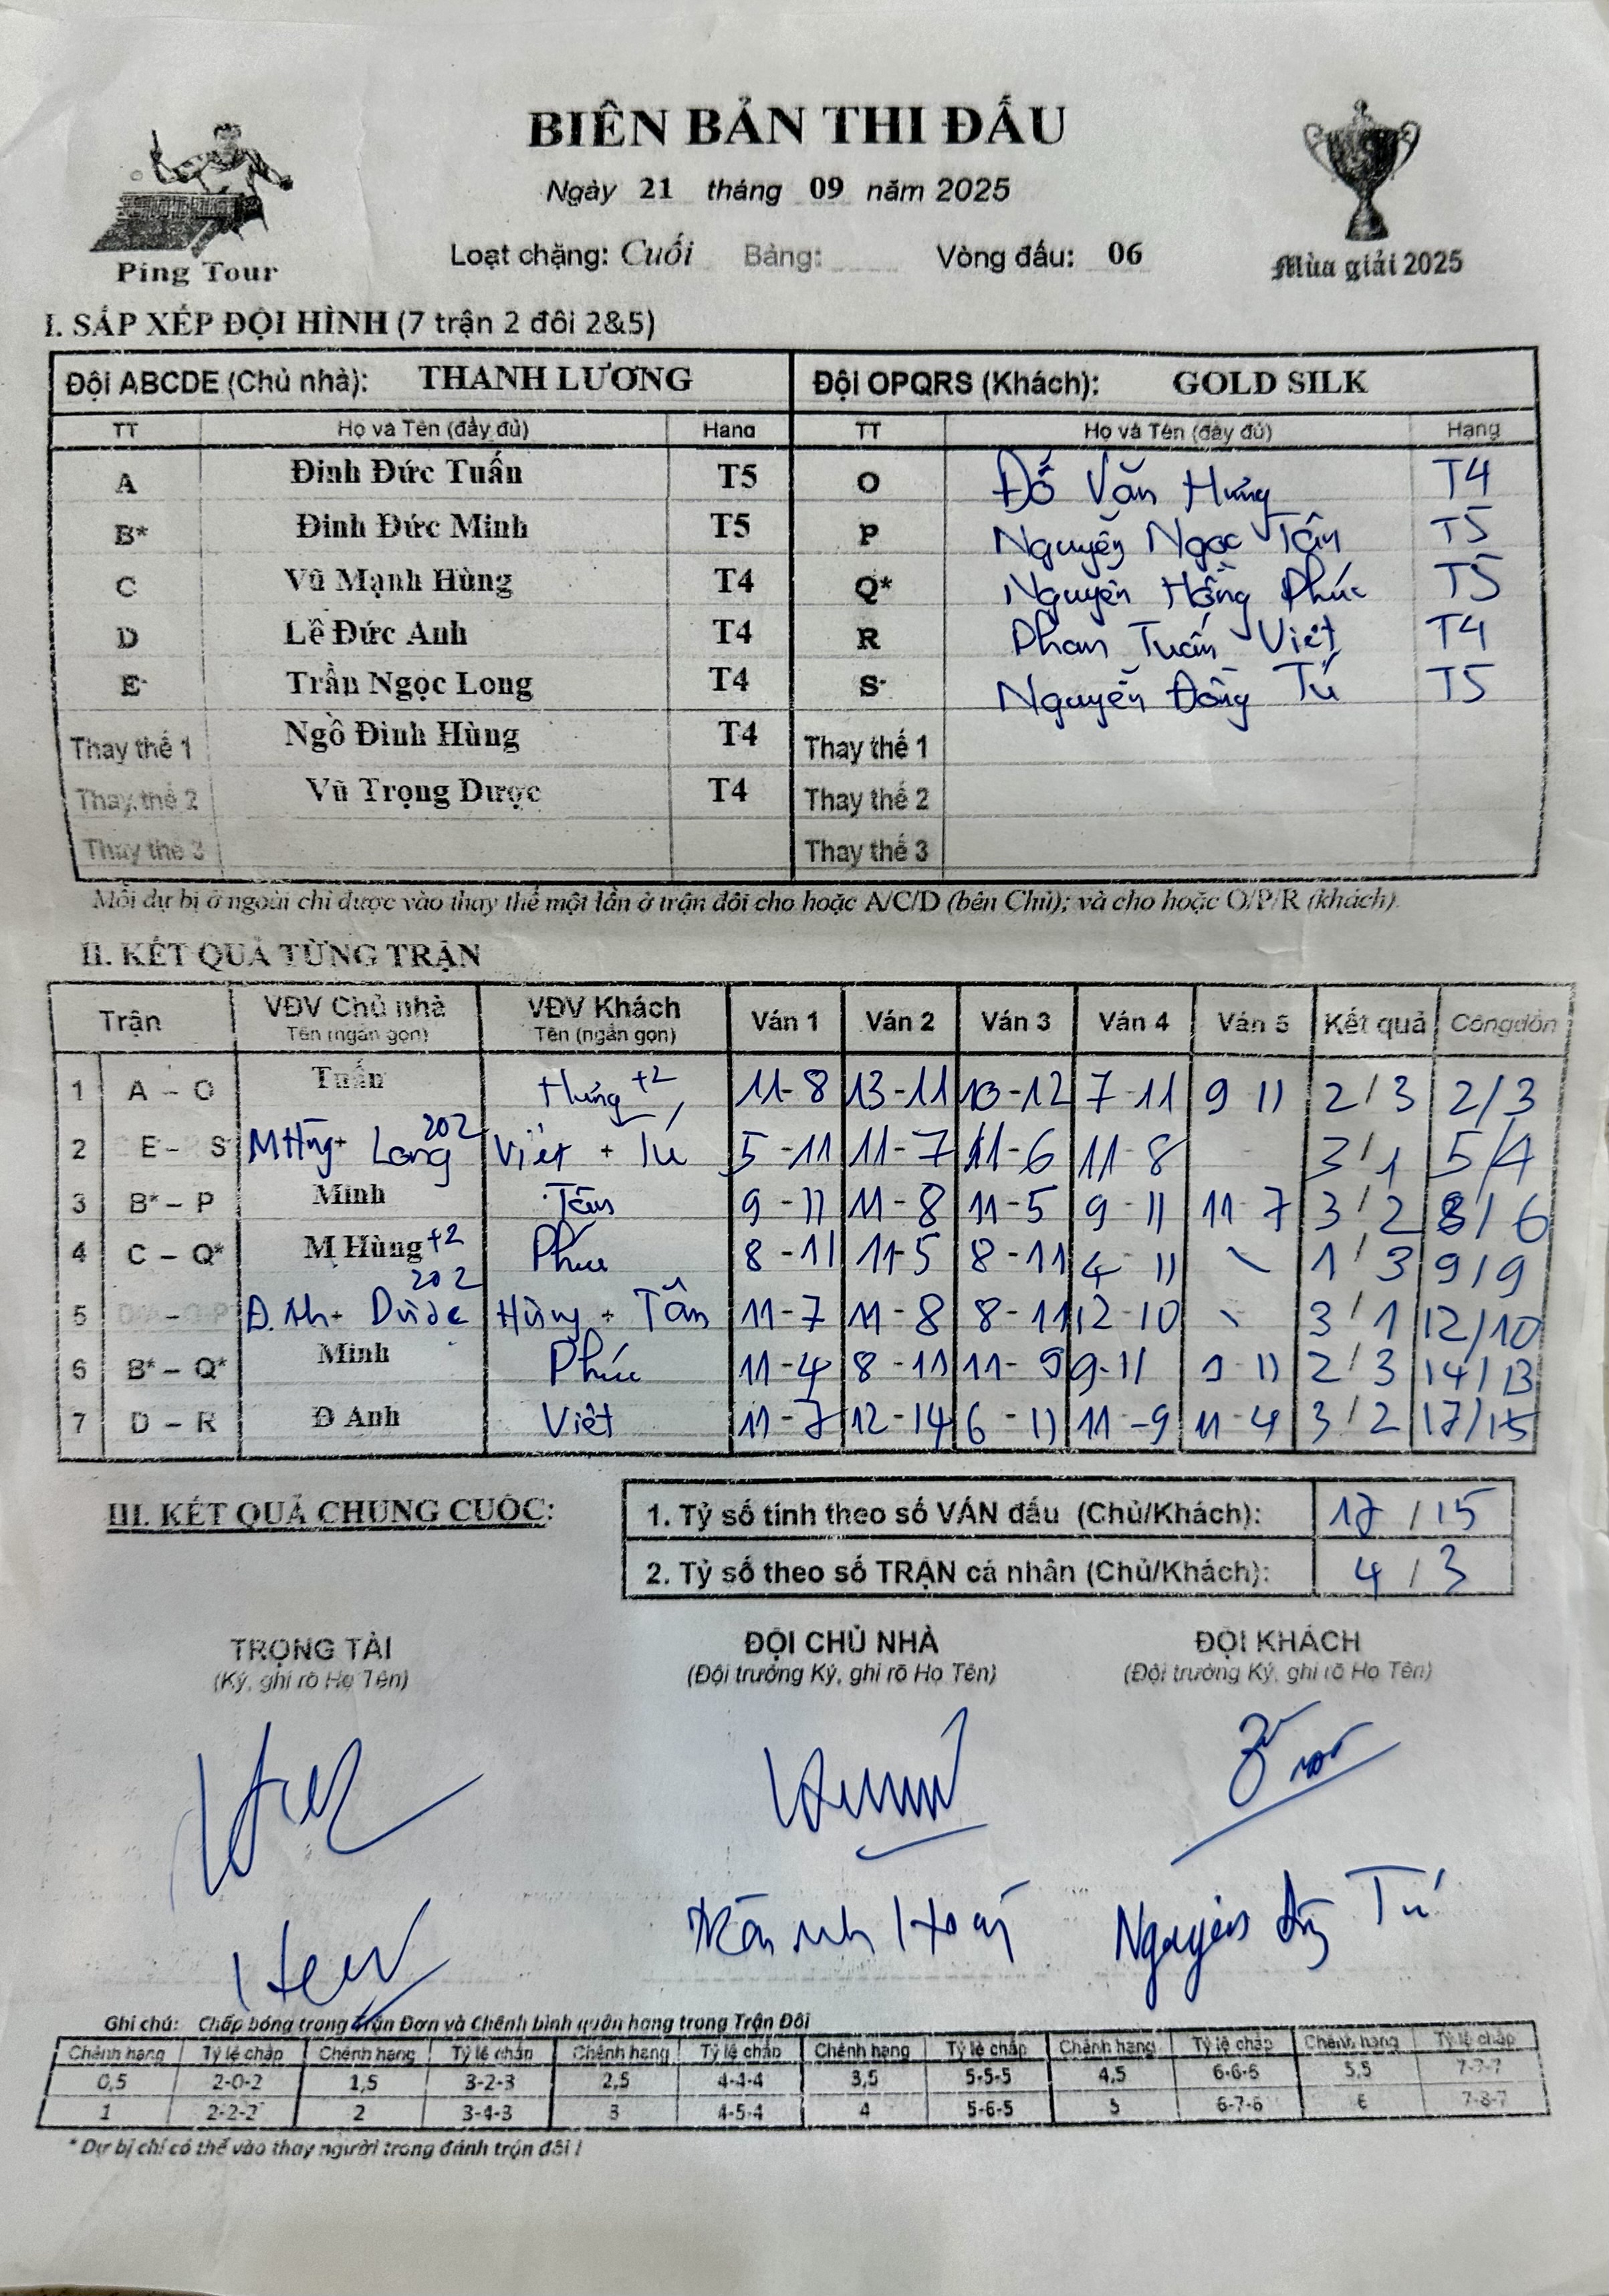 BIÊN BẢN THI ĐẤU
Ngày 21 tháng 09 năm 2025
Loạt chặng: Cuối Bảng: Vòng đấu: 06
Ping Tour
Mùa giải 2025
I. SẮP XẾP ĐỘI HÌNH (7 trận 2 đôi 2&5)
Đội ABCDE (Chủ nhà): THANH LƯƠNG Đội OPQRS (Khách): GOLD SILK
TT Họ và Tên (đầy đủ) Hạng TT Họ và Tên (đầy đủ) Hạng
A Đinh Đức Tuấn T5 O Đỗ Văn Hưng T4
B* Đinh Đức Minh T5 P Nguyễn Ngọc Tân T5
C Vũ Mạnh Hùng T4 Q* Nguyễn Hồng Phúc T5
D Lê Đức Anh T4 R Phan Tuấn Việt T4
E* Trần Ngọc Long T4 S* Nguyễn Đồng Tú T5
Thay thế 1 Ngô Đinh Hùng T4 Thay thế 1
Thay thế 2 Vũ Trọng Dược T4 Thay thế 2
Thay thế 3 Thay thế 3
Mỗi dự bị ở ngoài chỉ được vào thay thế một lần ở trận đôi cho hoặc A/C/D (bên Chủ); và cho hoặc O/P/R (khách).
II. KẾT QUẢ TỪNG TRẬN
Trận VĐV Chủ nhà VĐV Khách Ván 1 Ván 2 Ván 3 Ván 4 Ván 5 Kết quả Cộng dồn
Tên (ngắn gọn) Tên (ngắn gọn)
1 A - O Tuấn Hưng +2 11-8 13-11 10-12 7-11 9 11 2/3 2/3
2 E - S MHùng + Long 202 Việt + Tú 5-11 11-7 11-6 11-8 - 3/1 5/4
3 B* - P Minh Tân 9-11 11-8 11-5 9-11 11-7 3/2 8/6
4 C - Q* M Hùng +2 Phúc 8-11 11-5 8-11 4-11 1/3 9/9
5 Đ.Anh + Dược 202 Hưng + Tân 11-7 11-8 8-11 12-10 3/1 12/10
6 B* - Q* Minh Phúc 11-4 8-11 11-9 9-11 9 11 2/3 14/13
7 D - R Đ Anh Việt 11-7 12-14 6-11 11-9 11-4 3/2 17/15
III. KẾT QUẢ CHUNG CUỘC:
1. Tỷ số tính theo số VÁN đấu (Chủ/Khách): 17/15
2. Tỷ số theo số TRẬN cá nhân (Chủ/Khách): 4/3
TRỌNG TÀI ĐỘI CHỦ NHÀ ĐỘI KHÁCH
(Ký, ghi rõ Họ Tên) (Đội trưởng Ký, ghi rõ Họ Tên) (Đội trưởng Ký, ghi rõ Họ Tên)
Nguyễn Tú
Ghi chú: Chấp bóng trong Trận Đơn và Chênh bình quân hạng trong Trận Đôi
Chênh hạng Tỷ lệ chấp Chênh hạng Tỷ lệ chấp Chênh hạng Tỷ lệ chấp Chênh hạng Tỷ lệ chấp Chênh hạng Tỷ lệ chấp Chênh hạng Tỷ lệ chấp
0,5 2-0-2 1,5 3-2-3 2,5 4-4-4 3,5 5-5-5 4,5 6-6-6 5,5 7-7-7
1 2-2-2 2 3-4-3 3 4-5-4 4 5-6-5 5 6-7-6 6 7-8-7
* Dự bị chỉ có thể vào thay người trong đánh trận đôi !